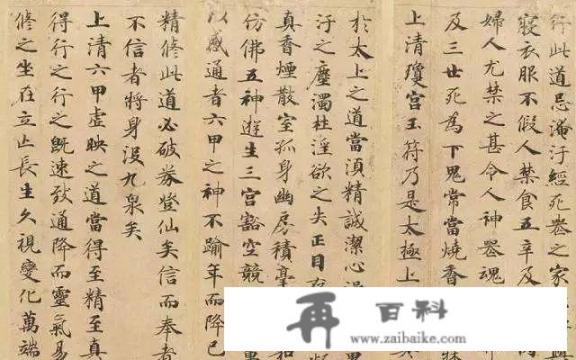 行此道忌淹汙經死喪之家
寢衣服不假人禁食五辛及
婦人尤禁之甚令人神喪魂
及三世死為下鬼常當燒香
上清瓊宮玉符乃是太極上
於太上之道當須精誠潔心澡
汙之塵濁杜淫欲之失正目存
真香煙散室孤身幽房積毫
仿佛五神遊生三宮豁空競
以感通者六甲之神不踰年而降己
精修此道必破券登仙矣信而奉者
不信者將身沒九泉矣
上清六甲虛映之道當得至精至真
得行之行之既速致通降而靈氣易
修之坐在立亡長生久視變化萬端
再百科
www.zaibaike.com